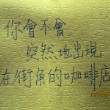 你會不會
突然地出現
在街角的咖啡店